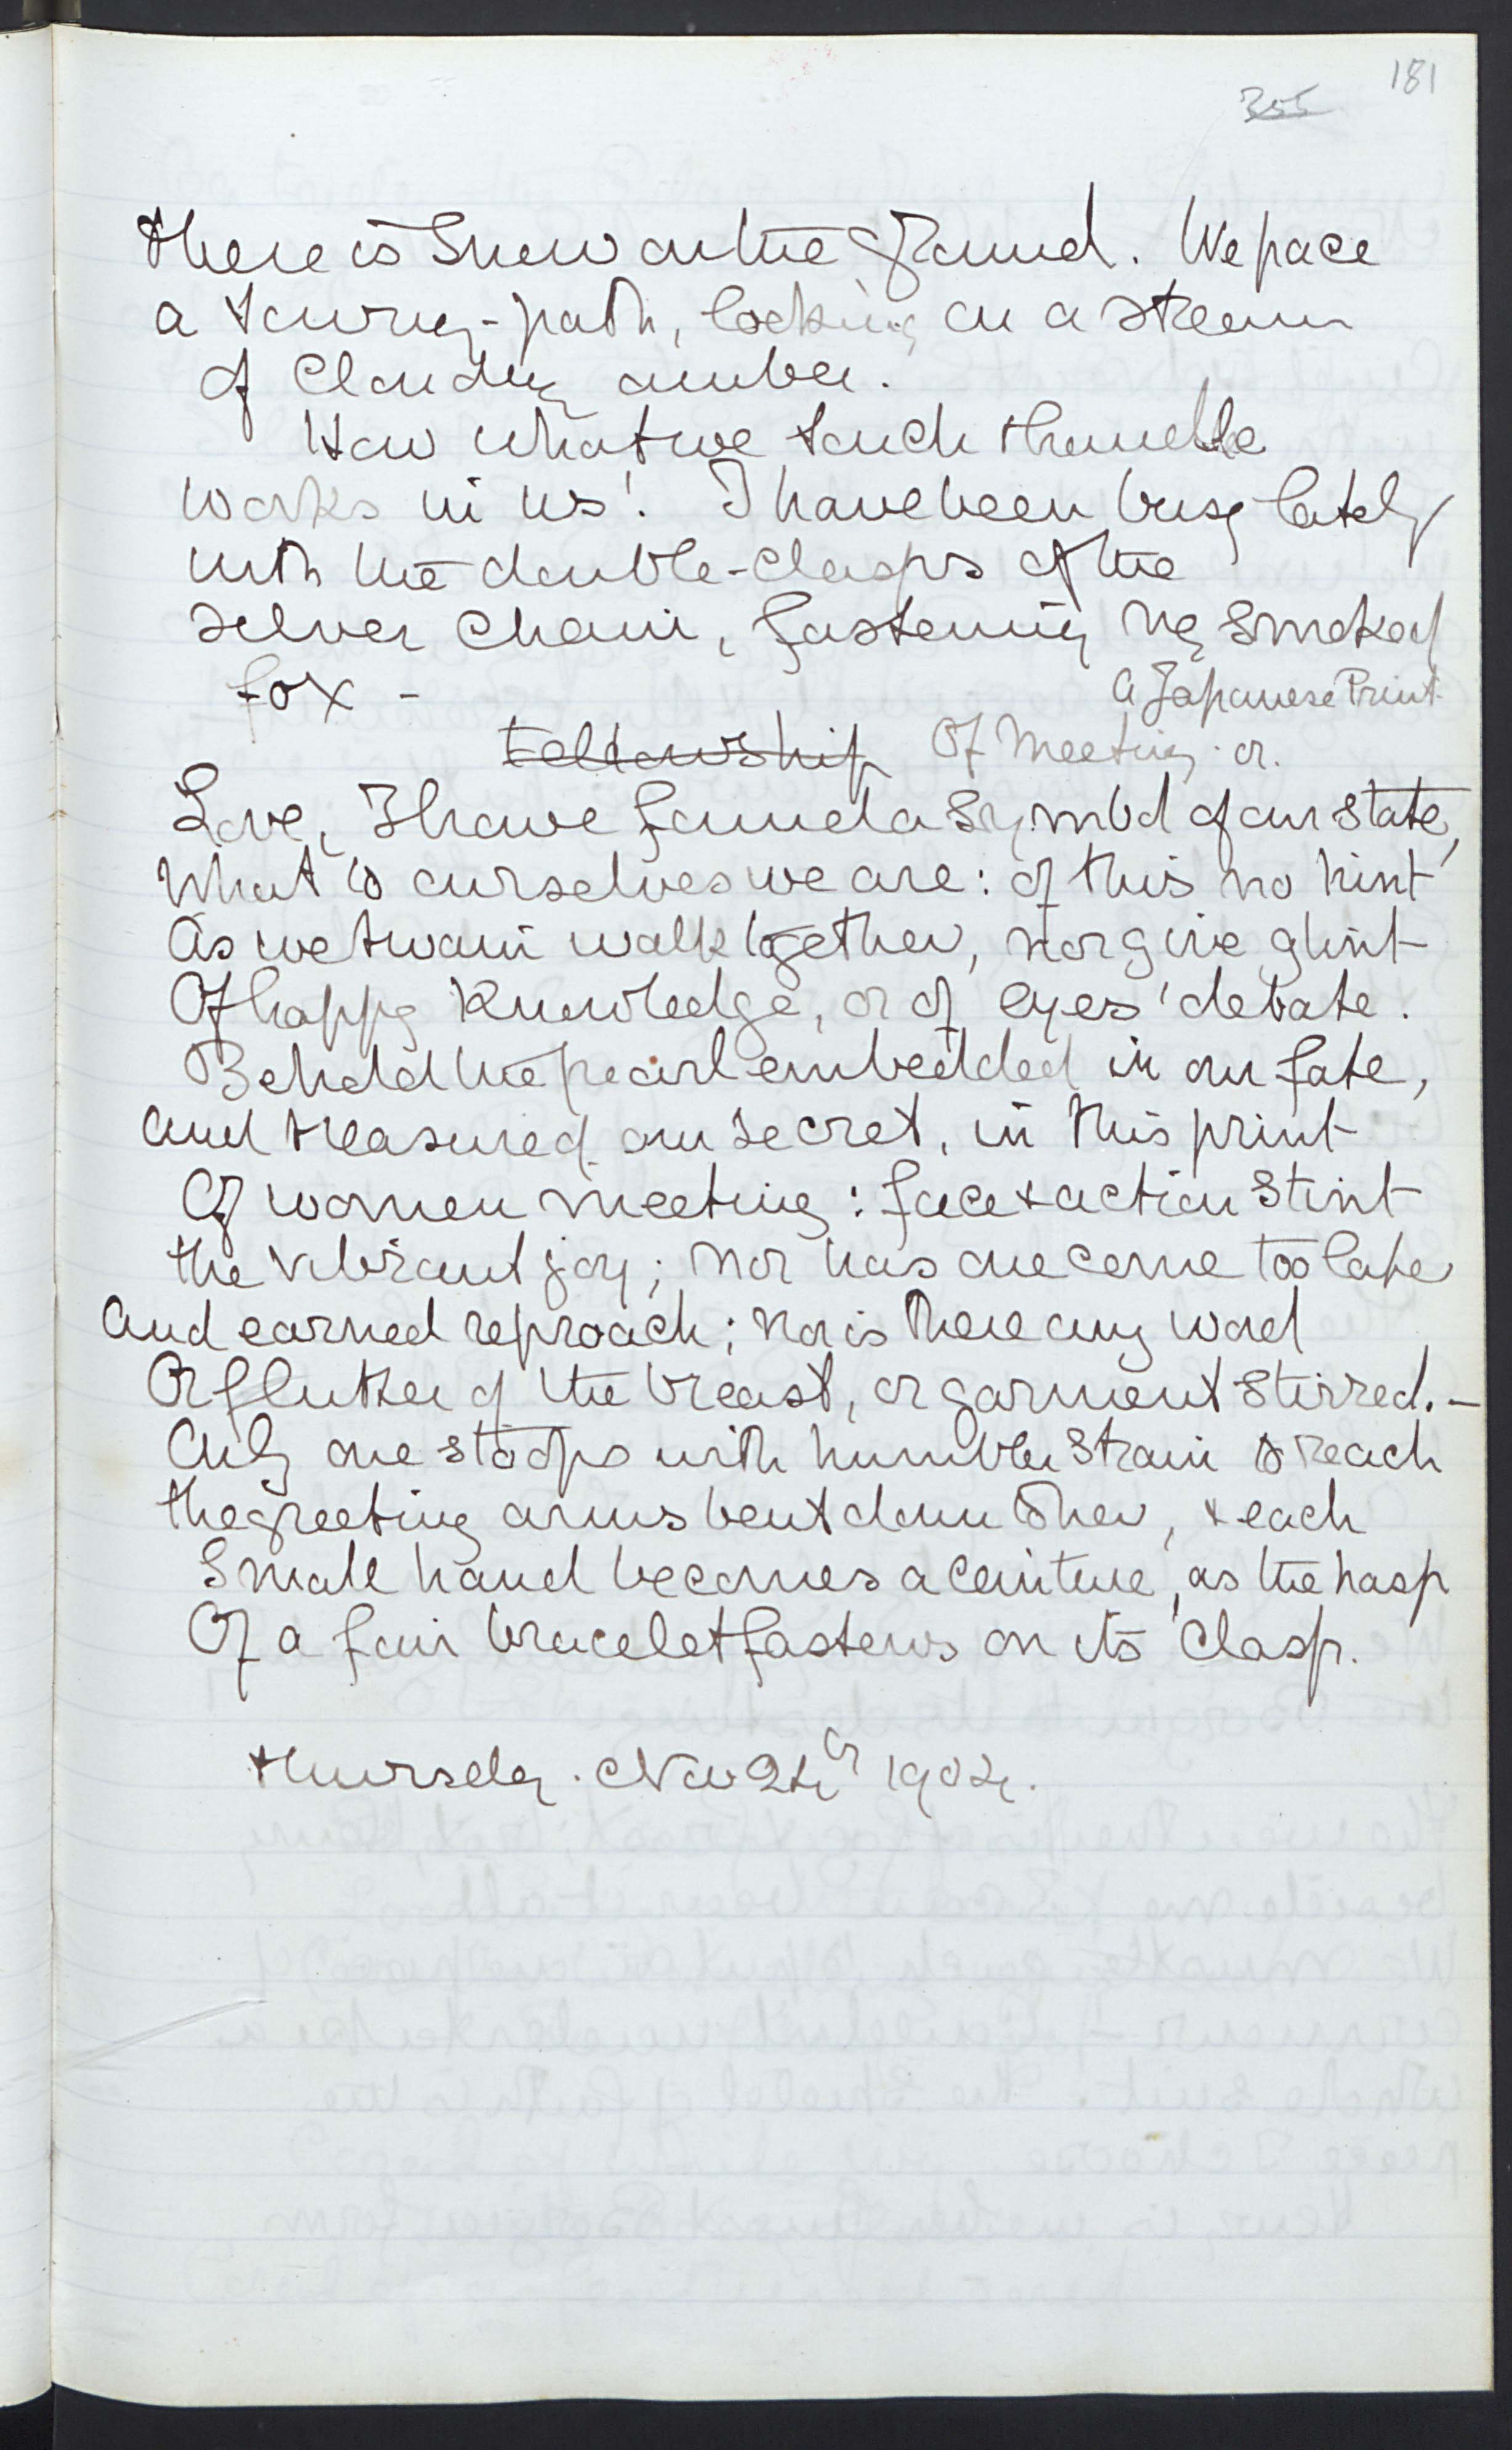 181
355
there is Snow on the ground. We pace
a towing-path, looking on a stream
of Cloudy amber.
How what we touch thro' life
works in us! I have been busy lately
with the double-clasps of the
silver chain, fastening my smoked
fox -
A Japanese Print
Fellowship Of Meeting. or.
Love, I have found a Symbol of our state,
What to ourselves we are: of this no hint
As we twain walk together, nor give glint
Of happy Knowledge, or of eyes' debate.
Behold the pearl embedded in our fate,
And treasured our secret, in this print
Of women meeting: face & action stint
the vibrant joy; nor has one come too late
And earned reproach; Nor is there any word
Or flutter of the breast, or garment stirred. -
Only one stoops with humbler strain to reach
the greeting arms bent down to her, & each
Small hand becomes a ceinture, as the hasp
Of a fair bracelet fastens on its clasp.
Thursday. Nov 24th 1904.